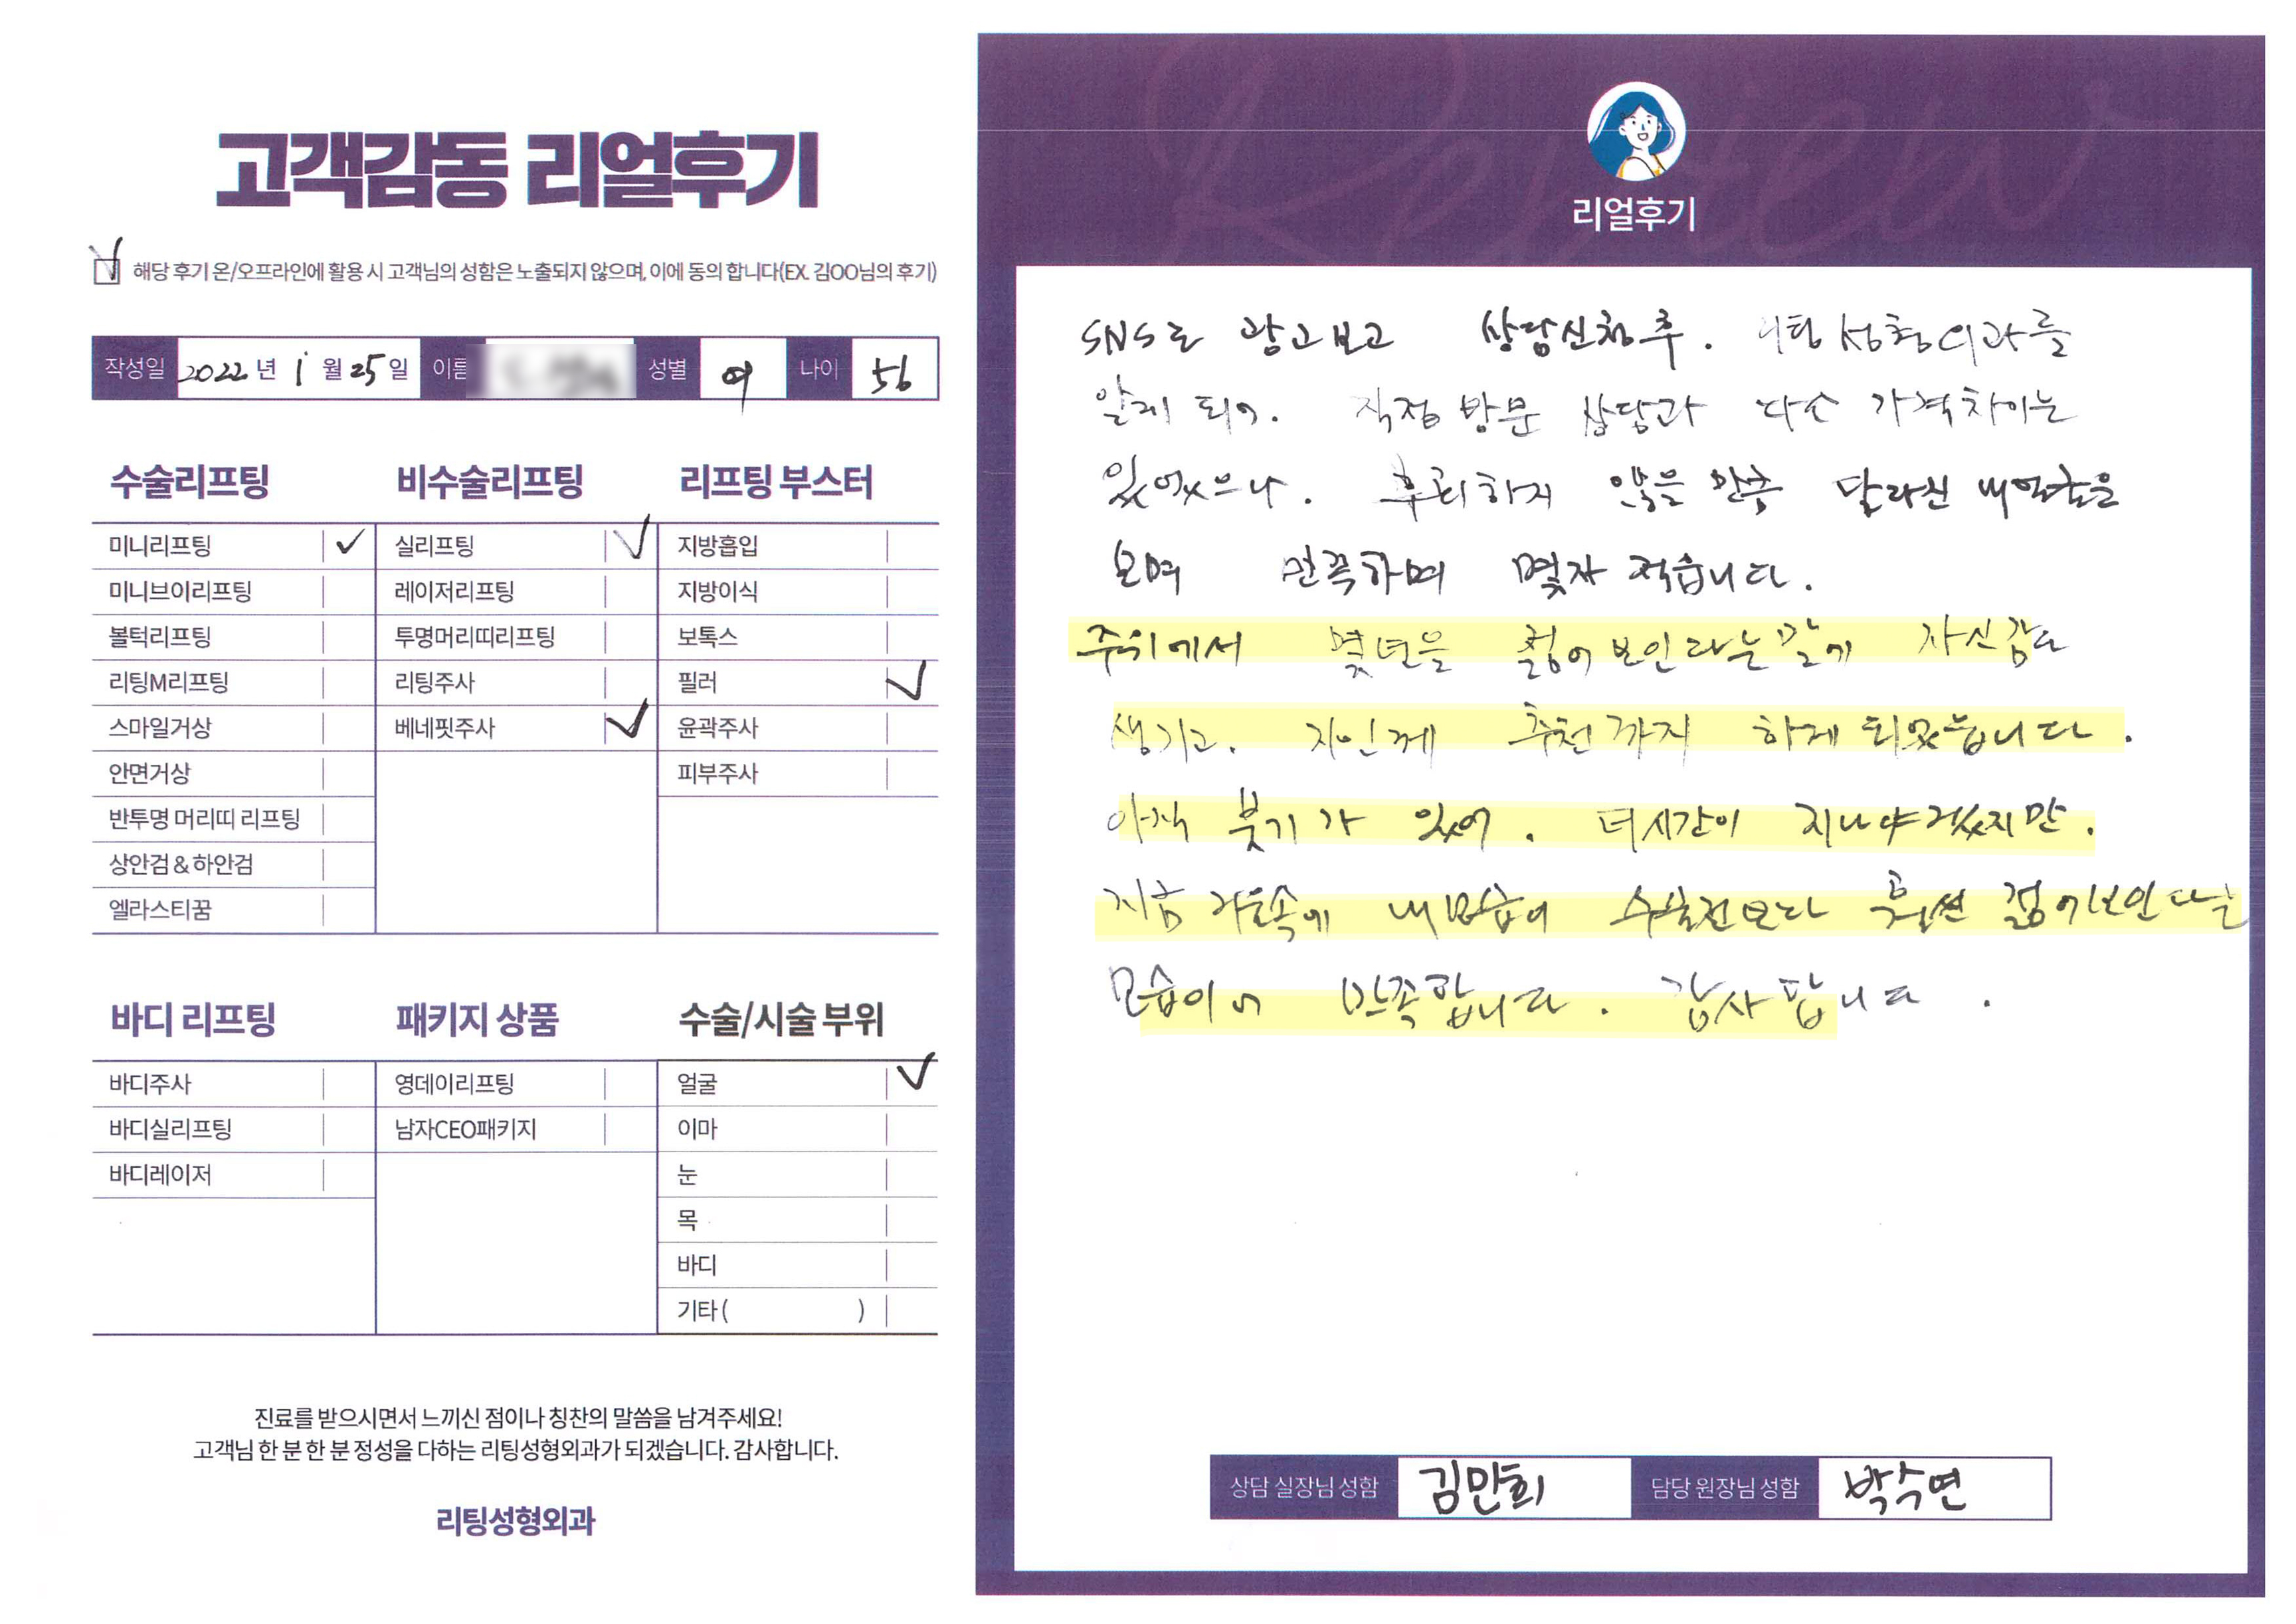 고객감동 리얼후기
해당 후기 온/오프라인에 활용 시 고객님의 성함은 노출되지 않으며, 이에 동의 합니다(EX. 김OO님의 후기)
작성일 2022 년 1 월 25 일 이름 성별 여 나이 56
수술리프팅
미니리프팅 ✓
미니브이리프팅
볼턱리프팅
리팅M리프팅
스마일거상
안면거상
반투명 머리띠 리프팅
상안검 & 하안검
엘라스티꿈
비수술리프팅
실리프팅 ✓
레이저리프팅
투명머리띠리프팅
리팅주사
베네핏주사 ✓
리프팅 부스터
지방흡입
지방이식
보톡스
필러 ✓
윤곽주사
피부주사
바디 리프팅
바디주사
바디실리프팅
바디레이저
패키지 상품
영데이리프팅
남자CEO패키지
수술/시술 부위
얼굴 ✓
이마
눈
목
바디
기타 ( )
진료를 받으시면서 느끼신 점이나 칭찬의 말씀을 남겨주세요!
고객님 한 분 한 분 정성을 다하는 리팅성형외과가 되겠습니다. 감사합니다.
리팅성형외과
Review
리얼후기
SNS로 광고보고 상담신청후. 리팅성형외과를
알게 되어. 직접방문 상담과 다소 가격차이는
있었으나. 후회하지 않을 만큼 달라진 내얼굴을
보며 만족하며 몇자 적습니다.
주위에서 몇년은 젊어보인다는말에 자신감도
생기고. 지인께 추천까지 하게 되었습니다.
아직 붓기가 있어. 더시간이 지나야겠지만.
지금 거울속에 내모습이 수술전보다 훨씬 젊어보인다는
모습이어 만족합니다. 감사합니다.
상담 실장님 성함 김만희 담당 원장님 성함 박수연